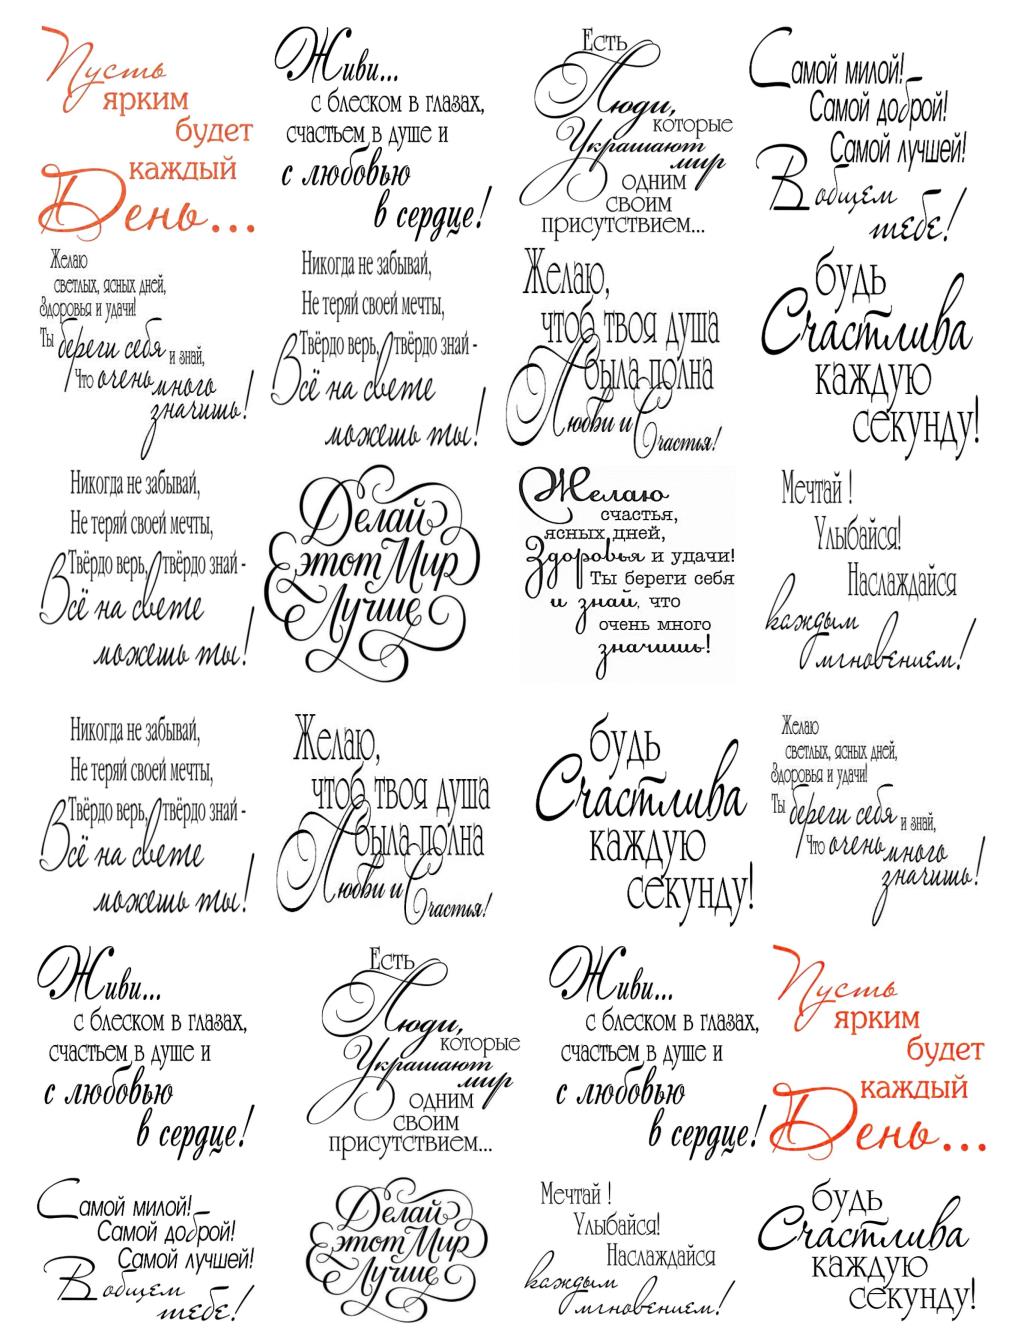 Пусть
ярким
будет
каждый
День...
Живи...
с блеском в глазах,
счастьем в душе и
с любовью
в сердце!
Есть
Люди,
которые
Украшают
мир
одним
своим
присутствием...
Самой милой!
Самой доброй!
Самой лучшей!
В общем
тебе!
Желаю
светлых, ясных дней,
Здоровья и удачи!
Ты береги себя и знай,
Что очень много
значишь!
Никогда не забывай,
Не теряй своей мечты,
Твёрдо верь, твёрдо знай -
Всё на свете
можешь ты!
Желаю,
чтоб твоя душа
была полна
Любви и Счастья!
будь
Счастлива
каждую
секунду!
Никогда не забывай,
Не теряй своей мечты,
Твёрдо верь, твёрдо знай -
Всё на свете
можешь ты!
Делай
этот Мир
Лучше
Желаю
счастья,
ясных дней,
Здоровья и удачи!
Ты береги себя
и знай, что
очень много
значишь!
Мечтай !
Улыбайся!
Наслаждайся
каждым
мгновением!
Никогда не забывай,
Не теряй своей мечты,
Твёрдо верь, твёрдо знай -
Всё на свете
можешь ты!
Желаю,
чтоб твоя душа
была полна
Любви и Счастья!
будь
Счастлива
каждую
секунду!
Желаю
светлых, ясных дней,
Здоровья и удачи!
Ты береги себя и знай,
Что очень много
значишь!
Живи...
с блеском в глазах,
счастьем в душе и
с любовью
в сердце!
Есть
Люди,
которые
Украшают
мир
одним
своим
присутствием...
Живи...
с блеском в глазах,
счастьем в душе и
с любовью
в сердце!
Пусть
ярким
будет
каждый
День...
Самой милой!
Самой доброй!
Самой лучшей!
В общем
тебе!
Делай
этот Мир
Лучше
Мечтай !
Улыбайся!
Наслаждайся
каждым
мгновением!
будь
Счастлива
каждую
секунду!